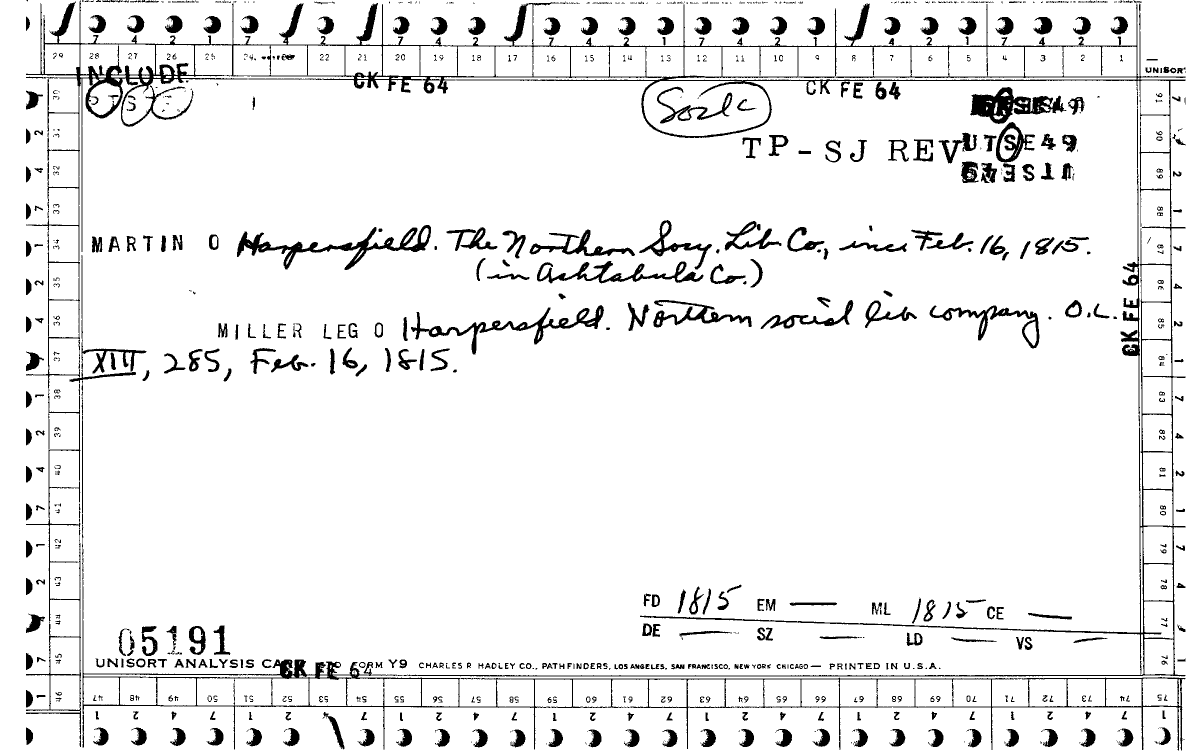 7 4 2 1 7 4 2 1 7 4 2 1 7 4 2 1 7 4 2 1 7 4 2 1 7 4 2 1
29 28 27 26 25 24 22 21 20 19 18 17 16 15 14 13 12 11 10 9 8 7 6 5 4 3 2 1
UNISORT
INCLUDE CK FE 64 CK FE 64
PTSTE
TP-SJ REV UTSE49
UTSE49
MARTIN O Harpersfield. The Northern Socy. Lib Co., inc. Feb. 16, 1815.
(in Ashtabula Co.)
CK FE 64
MILLER LEG O Harpersfield. Northern social lib company. O.L.
XIII, 285, Feb. 16, 1815.
FD 1815 EM — ML 1815 CE —
DE — SZ — LD — VS —
05191
UNISORT ANALYSIS CARD FORM Y9 CHARLES R HADLEY CO., PATHFINDERS, LOS ANGELES, SAN FRANCISCO, NEW YORK CHICAGO — PRINTED IN U.S.A.
CK FE 64
46 47 48 49 50 51 52 53 54 55 56 57 58 59 60 61 62 63 64 65 66 67 68 69 70 71 72 73 74 75
1 2 4 7 1 2 4 7 1 2 4 7 1 2 4 7 1 2 4 7 1 2 4 7 1 2 4 7